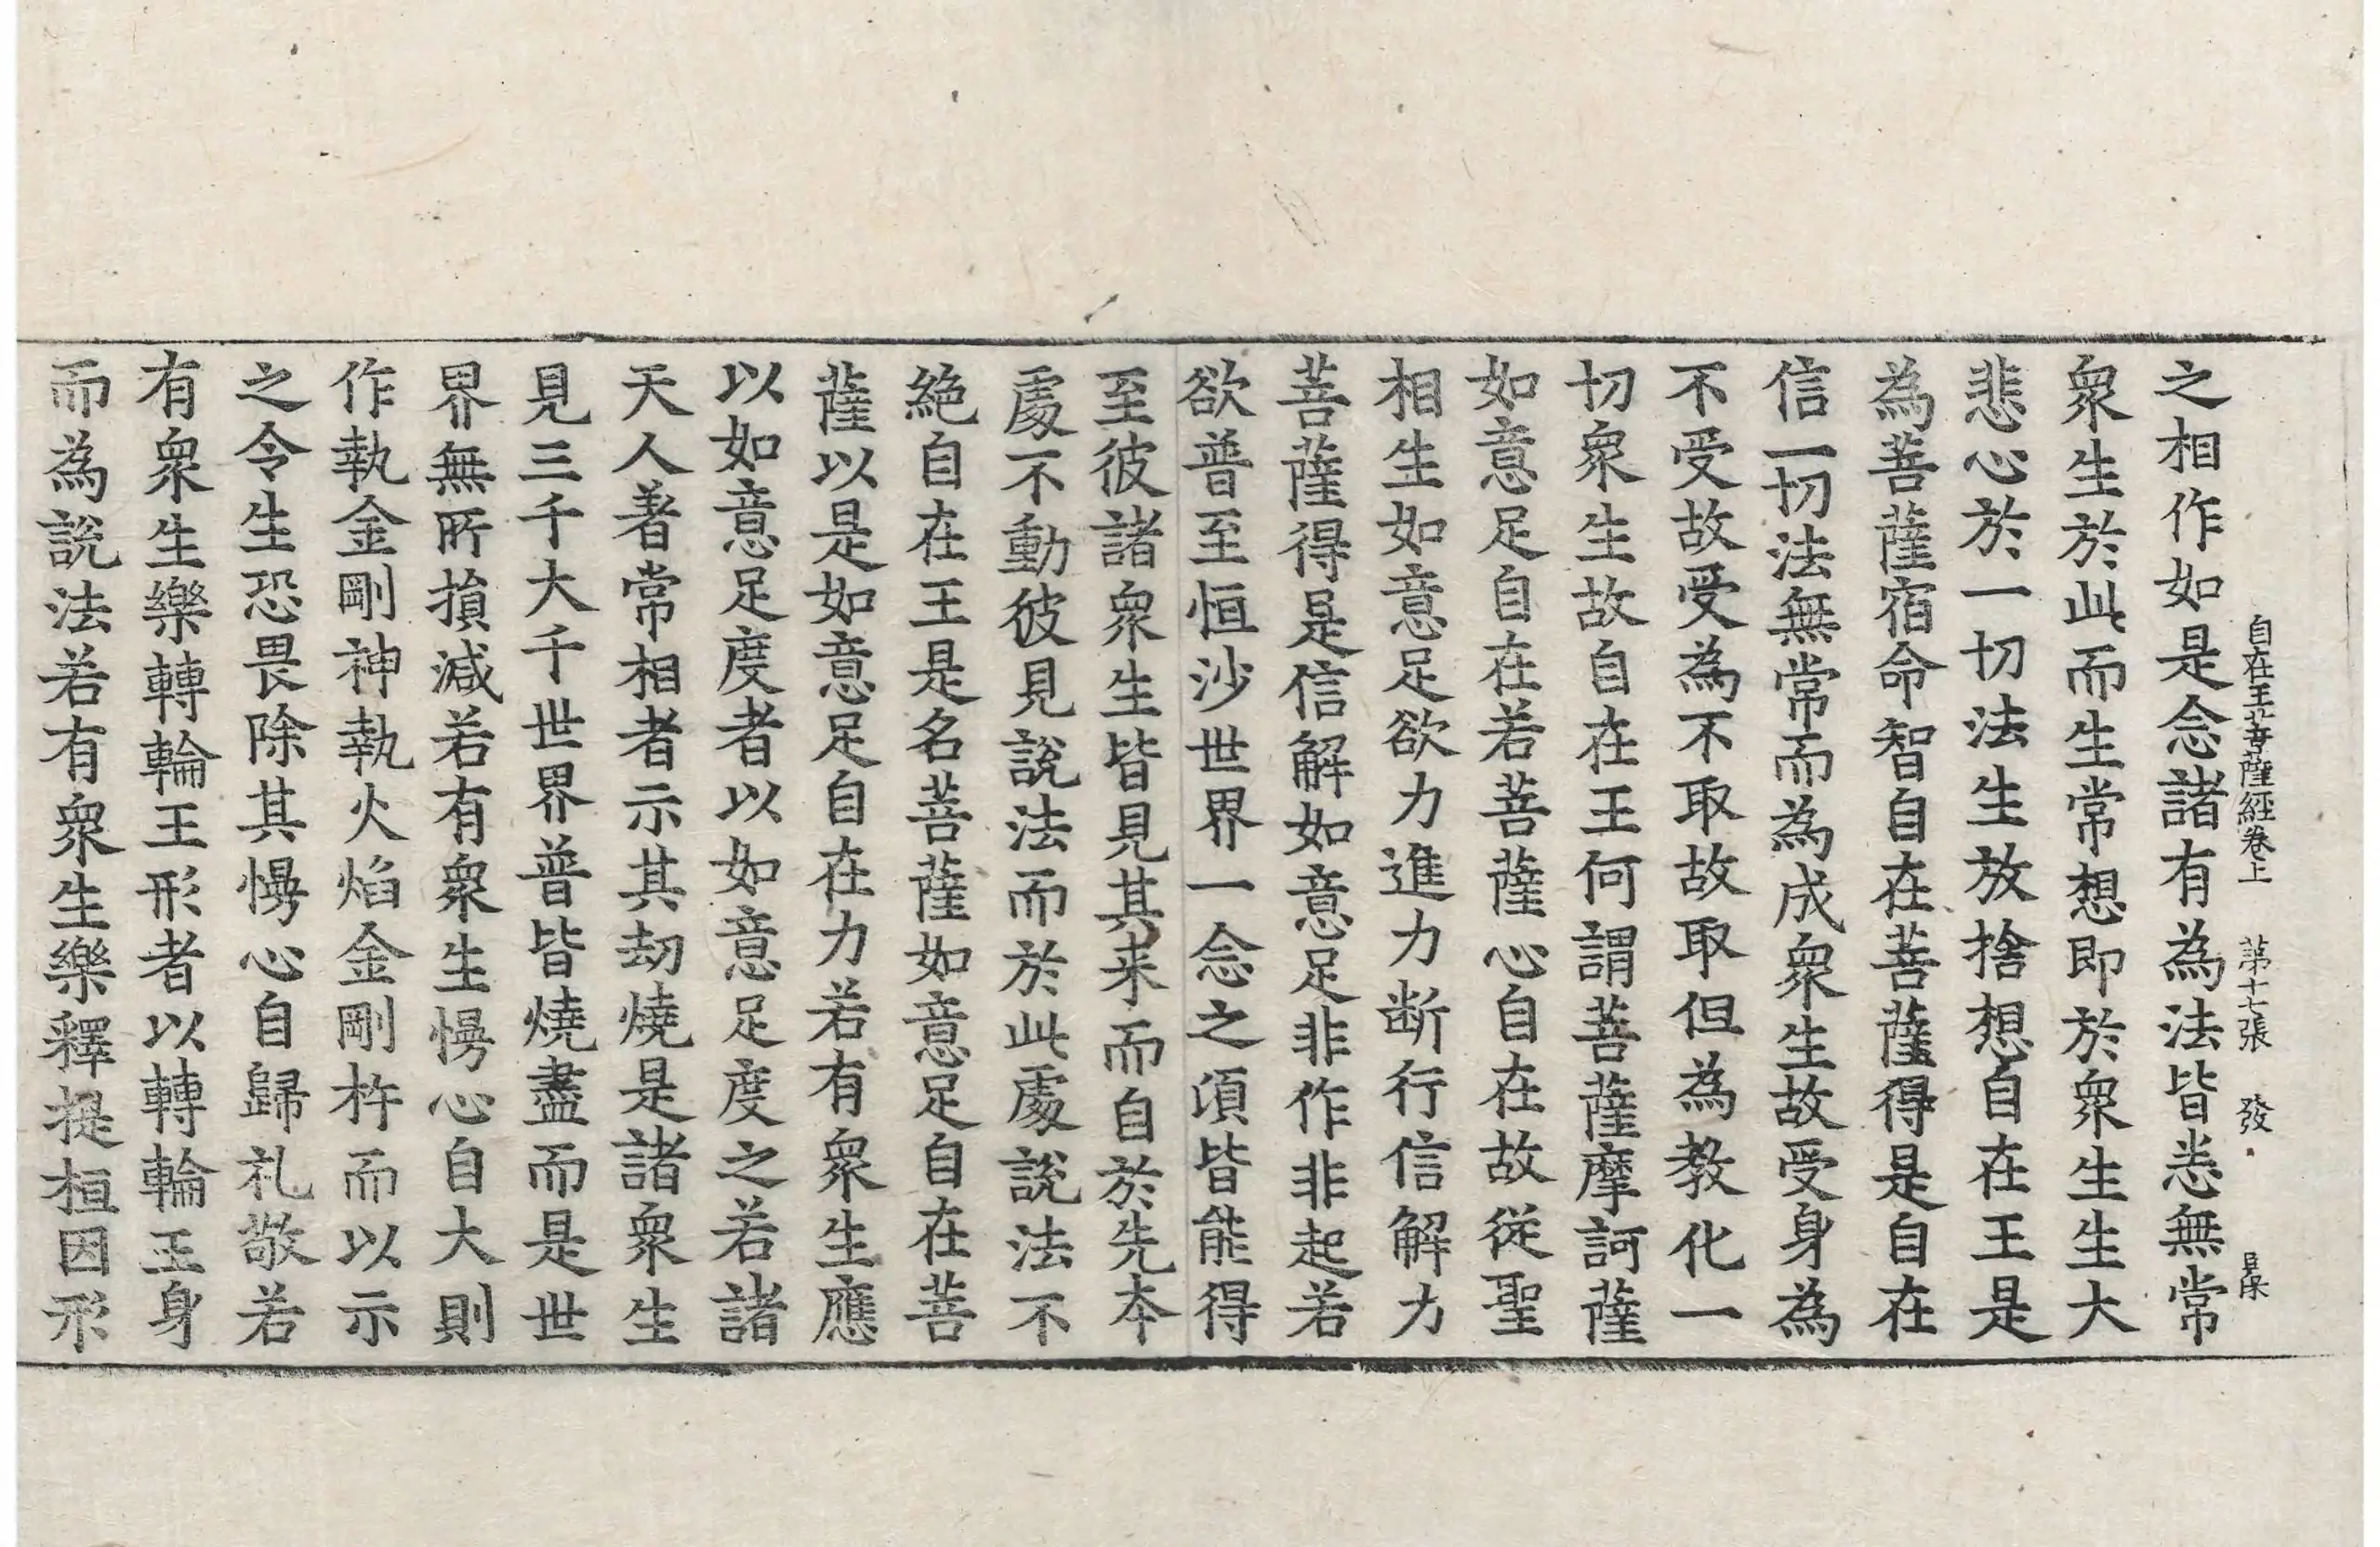 自在王菩薩經卷上 第十七張 發
之相作如是念諸有為法皆悉無常
衆生於此而生常想即於衆生生大
悲心於一切法生放捨想自在王是
為菩薩宿命智自在菩薩得是自在
信一切法無常而為成衆生故受身為
不受故受為不取故取但為教化一
切衆生故自在王何謂菩薩摩訶薩
如意足自在若菩薩心自在故從聖
相生如意足欲力進力断行信解力
菩薩得是信解如意足非作非起若
欲普至恒沙世界一念之湏皆能得
至彼諸衆生皆見其来而自於先夲
處不動彼見說法而於此處說法不
絕自在王是名菩薩如意足自在菩
薩以是如意足自在力若有衆生應
以如意足度者以如意足度之若諸
天人著常相者示其劫燒是諸衆生
見三千大千世界普皆燒盡而是世
界無所損減若有衆生憍心自大則
作執金剛神執火焰金剛杵而以示
之令生恐畏除其憍心自歸礼敬若
有衆生樂轉輪王形者以轉輪王身
而為說法若有衆生樂釋提桓因形